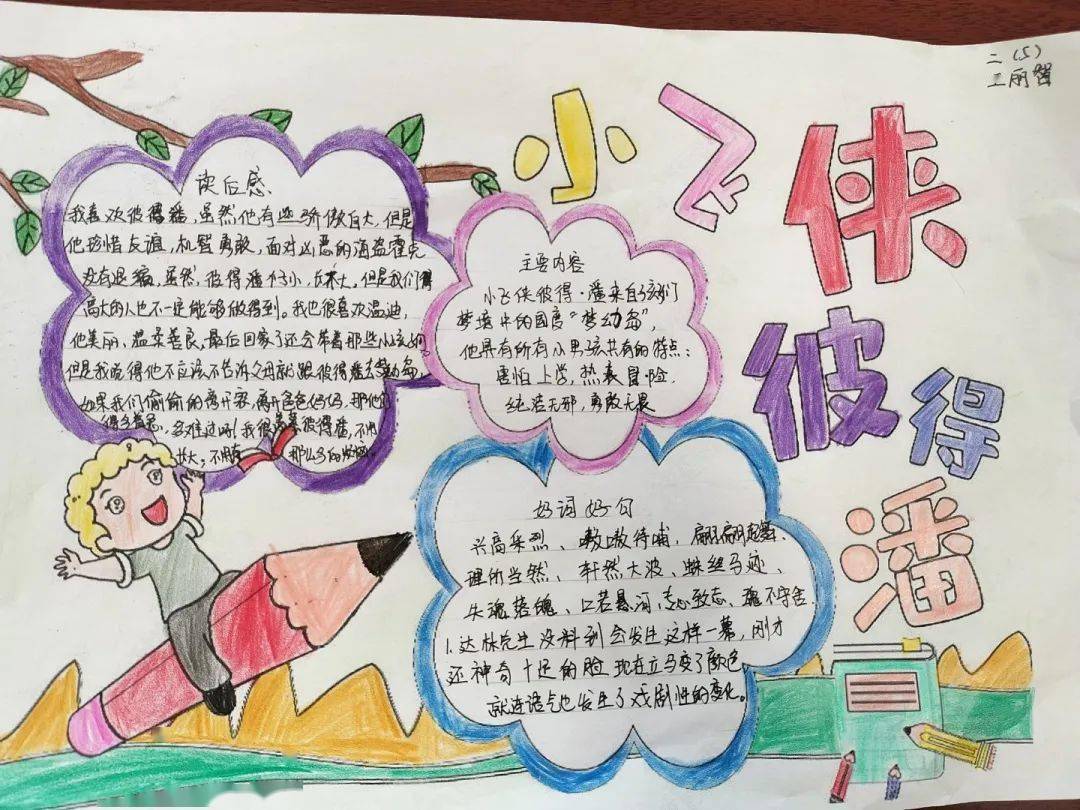 二(5)
王丽智
小飞侠
彼得
潘
读后感
我喜欢彼得潘,虽然他有些骄傲自大,但是
他珍惜友谊,机智勇敢,面对凶恶的海盗霍克
没有退缩,虽然,彼得潘个子小,
高大的人也不一定能够做得到。我也很喜欢温迪,
他美丽、温柔善良,最后回家了还会带着那些小孩
但是我觉得他不应该不告诉父母就跟彼得潘去梦幻岛,
如果我们偷偷的离开家,离开爸爸妈妈,那他们
得多着急,多难过啊!我很羡慕彼得潘,不用
长大,不用 那么多的烦恼。
主要内容
小飞侠彼得·潘来自孩们
梦境中的国度“梦幻岛”,
他具有所有小男孩共有的特点:
害怕上学,热衷冒险,
纯洁无邪,勇敢无畏
好词好句
兴高采烈、嗷嗷待哺,翩翩起舞、
理所当然、轩然大波、蛛丝马迹、
失魂落魄、口若悬河、专心致志、魂不守舍.
1.达林先生没料到会发生这样一幕,刚才
还神奇十足的脸现在立马变了颜色,
就连语气也发生了戏剧性的变化。